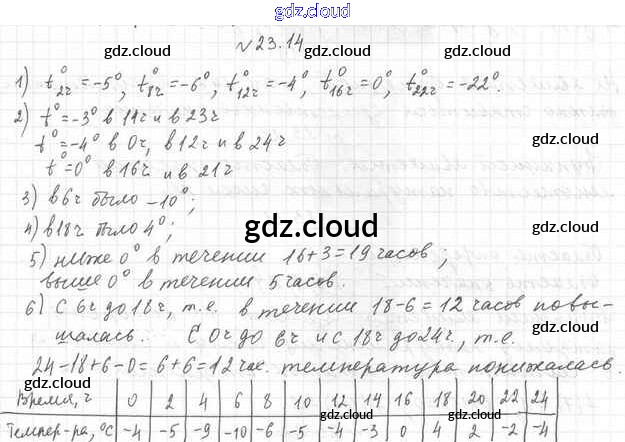 gdz.cloud
gdz.cloud gdz.cloud
№23.14
gdz.cloud gdz.cloud
1) t°2ч = -5°, t°8ч = -6°, t°12ч = -4°, t°16ч = 0°, t°22ч = -22°.
2) t° = -3° в 14ч и в 23ч
t° = -4° в 0ч, в 12ч и в 24ч
gdz.cloud gdz.cloud
t° = 0° в 16ч и в 21ч
3) в 6ч было -10°;
4) в 18ч было 4°;
gdz.cloud
5) ниже 0° в течении 16+3=19 часов;
выше 0° в течении 5 часов.
6) С 6ч до 18ч, т.е. в течении 18-6=12 часов повы-
шалась. С 0ч до 6ч и с 18ч до 24ч, т.е.
gdz.cloud
24-18+6-0=6+6=12 час. температура понижалась.
gdz.cloud gdz.cloud
Время, ч 0 2 4 6 8 10 12 14 16 18 20 22 24
gdz.cloud gdz.cloud
Темпер-ра, °C -4 -5 -9 -10 -6 -5 -4 -3 0 4 2 -2 -4